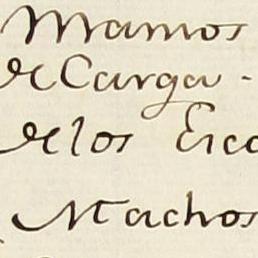 Mamos
de Carga -
de los Esco
Machos